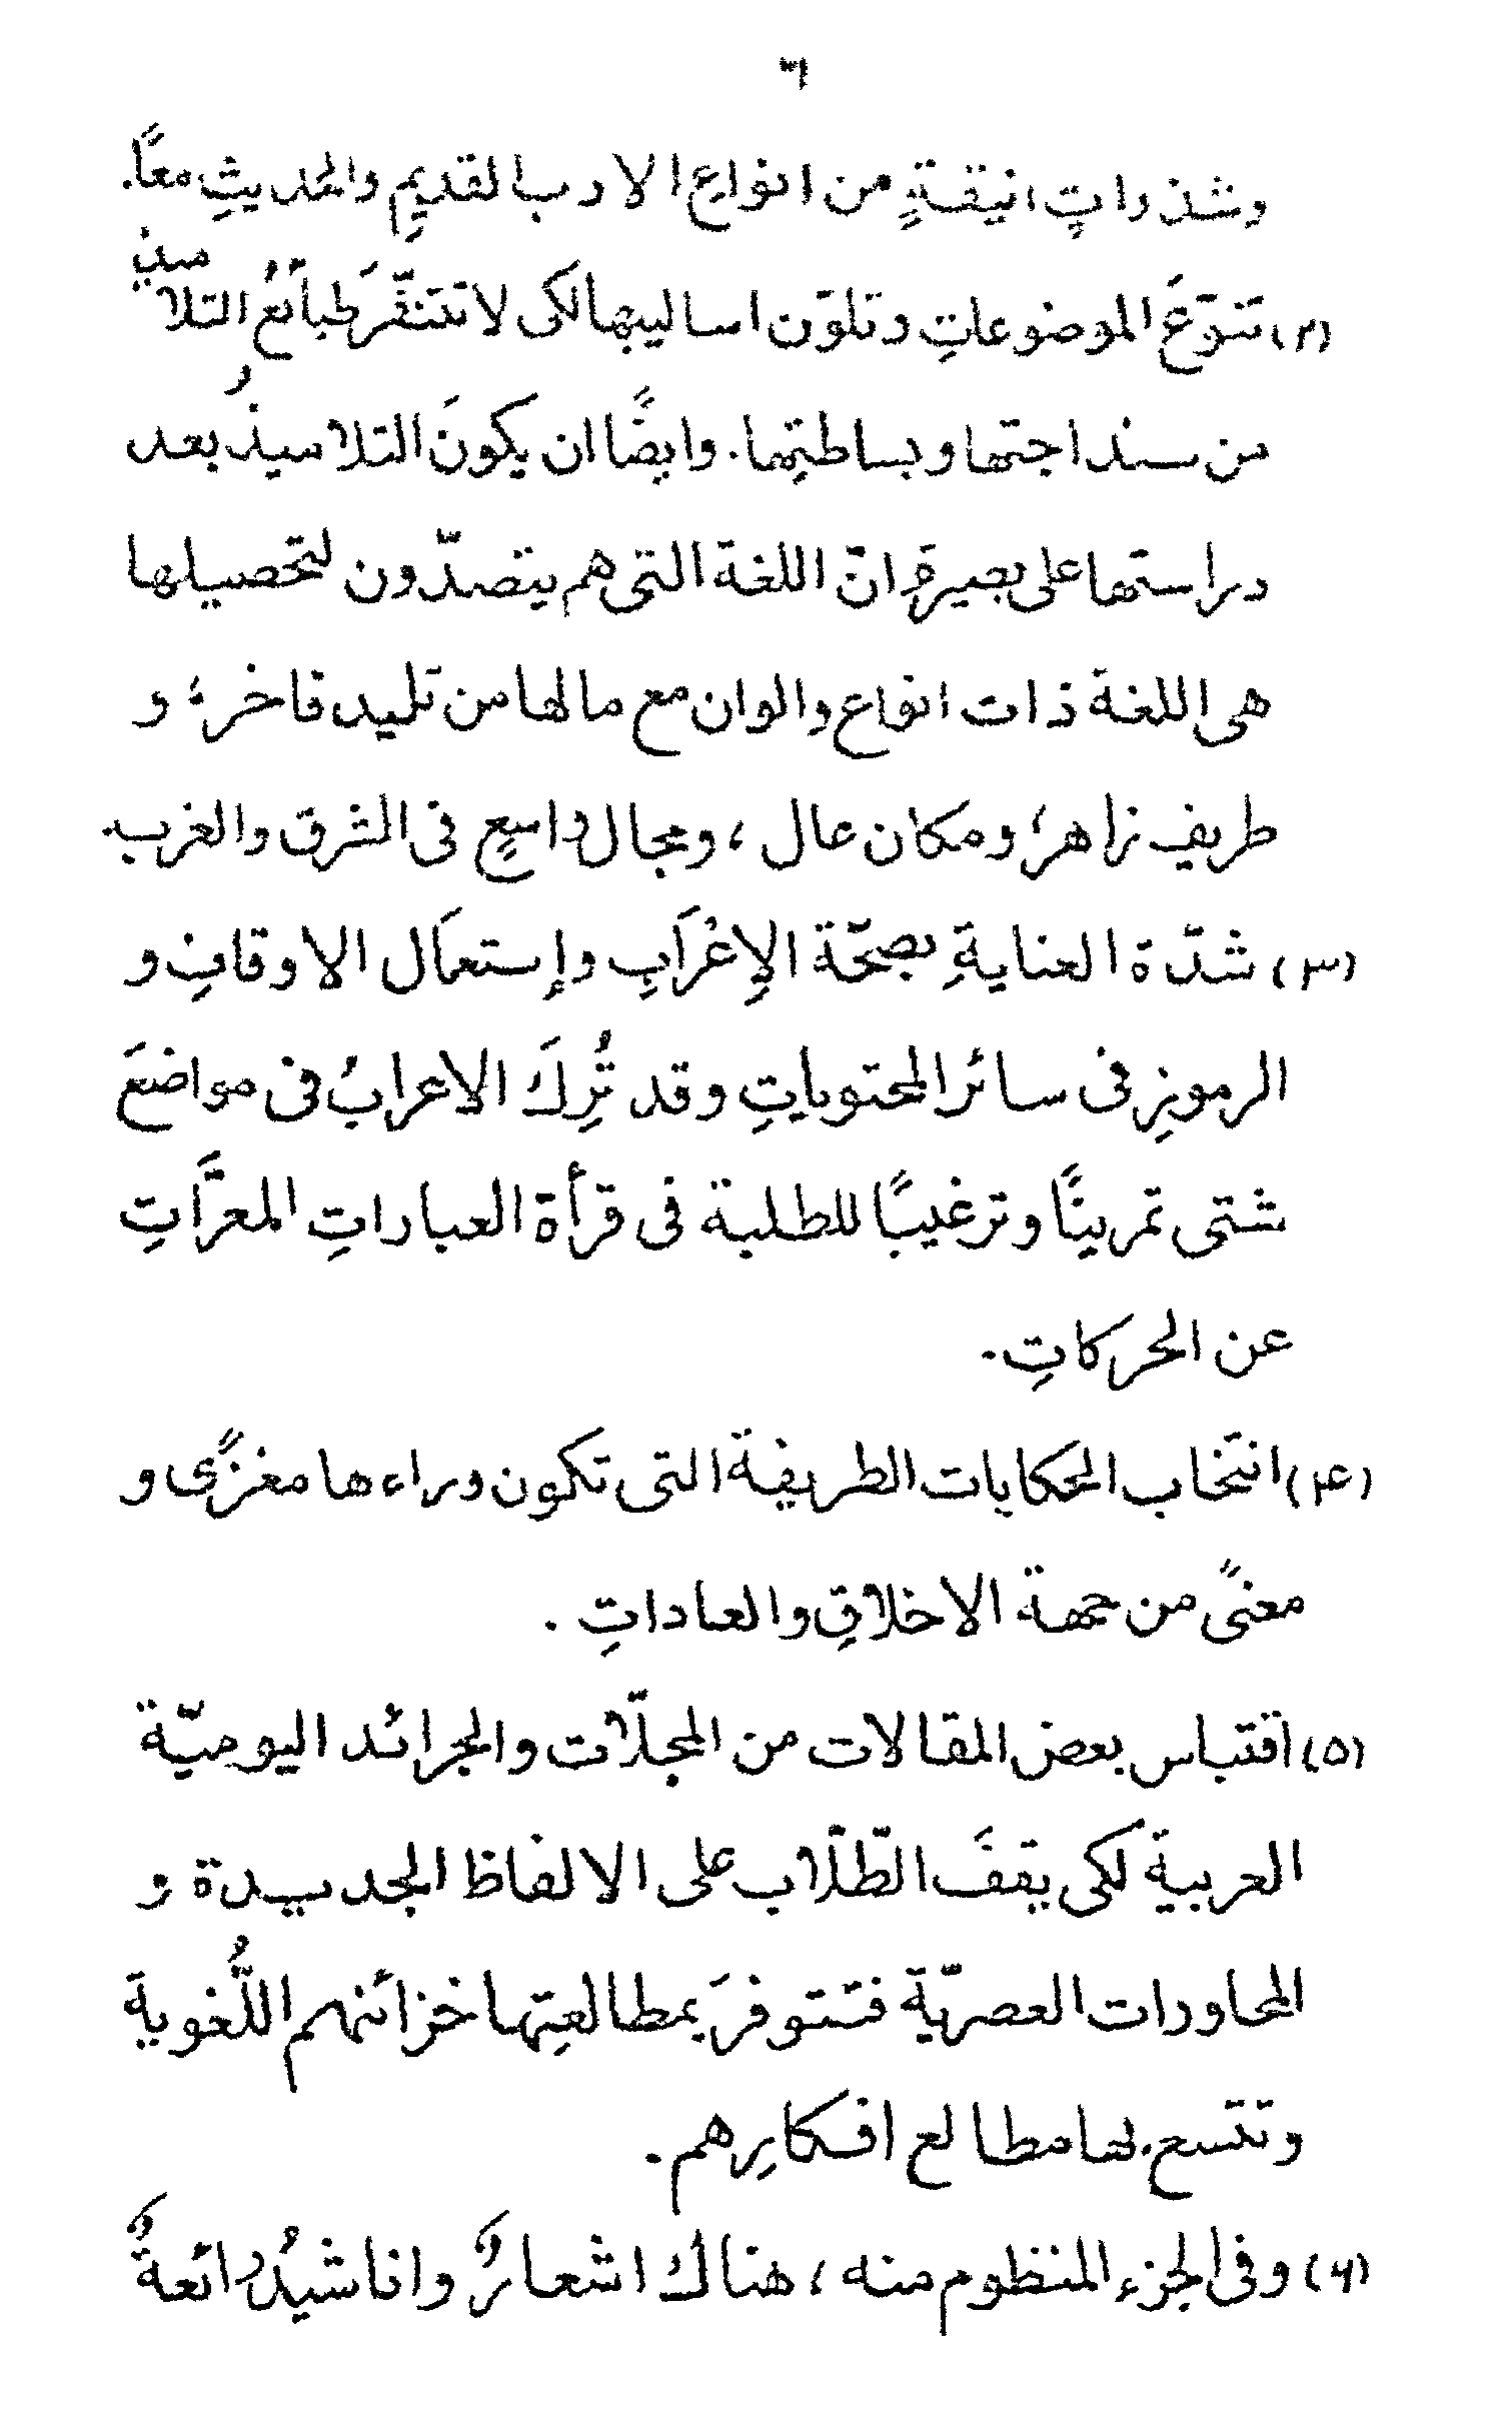 ٦
وشذراتٍ انيقةٍ من انواعِ الادب القديمِ والحديثِ معًا.
(٢) تنوّعَ الموضوعاتِ وتلوّن اساليبها لكى لا تتنفّرَ طبائعُ التلاميذِ
من سذاجتها وبساطتِها. وايضًا ان يكونَ التلاميذُ بعد
دراستها على بصيرةٍ انّ اللغة التى هم يتصدّون لتحصيلها
هى اللغة ذات انواع والوان مع مالها من تليد فاخر، و
طريف زاهر، ومكان عال، ومجال واسعٍ فى الشرق والغرب.
(٣) شدّة العنايةِ بصحّة الإعْرَابِ وإستعمَال الاوقافِ و
الرموزِ فى سائر المحتوياتِ وقد تُرِكَ الاعرابُ فى مواضعَ
شتى تمرينًا وترغيبًا للطلبة فى قرأة العباراتِ المعرَّاتِ
عن الحركاتِ.
(۴) انتخاب الحكايات الطريفة التى تكون وراءها مغزًى و
معنىً من جهة الاخلاقِ والعاداتِ.
(۵) اقتباس بعض المقالات من المجلّات والجرائد اليوميّة
العربية لكى يقفَ الطّلّاب على الالفاظ الجديدة و
المحاورات العصريّة فتتوفرَ بمطالعتِها خزائنهم اللُّغوية
وتتسع بها مطالع افكارِهم.
(۶) وفى الجزء المنظوم منه، هناك اشعارٌ واناشيدُ رائعةٌ